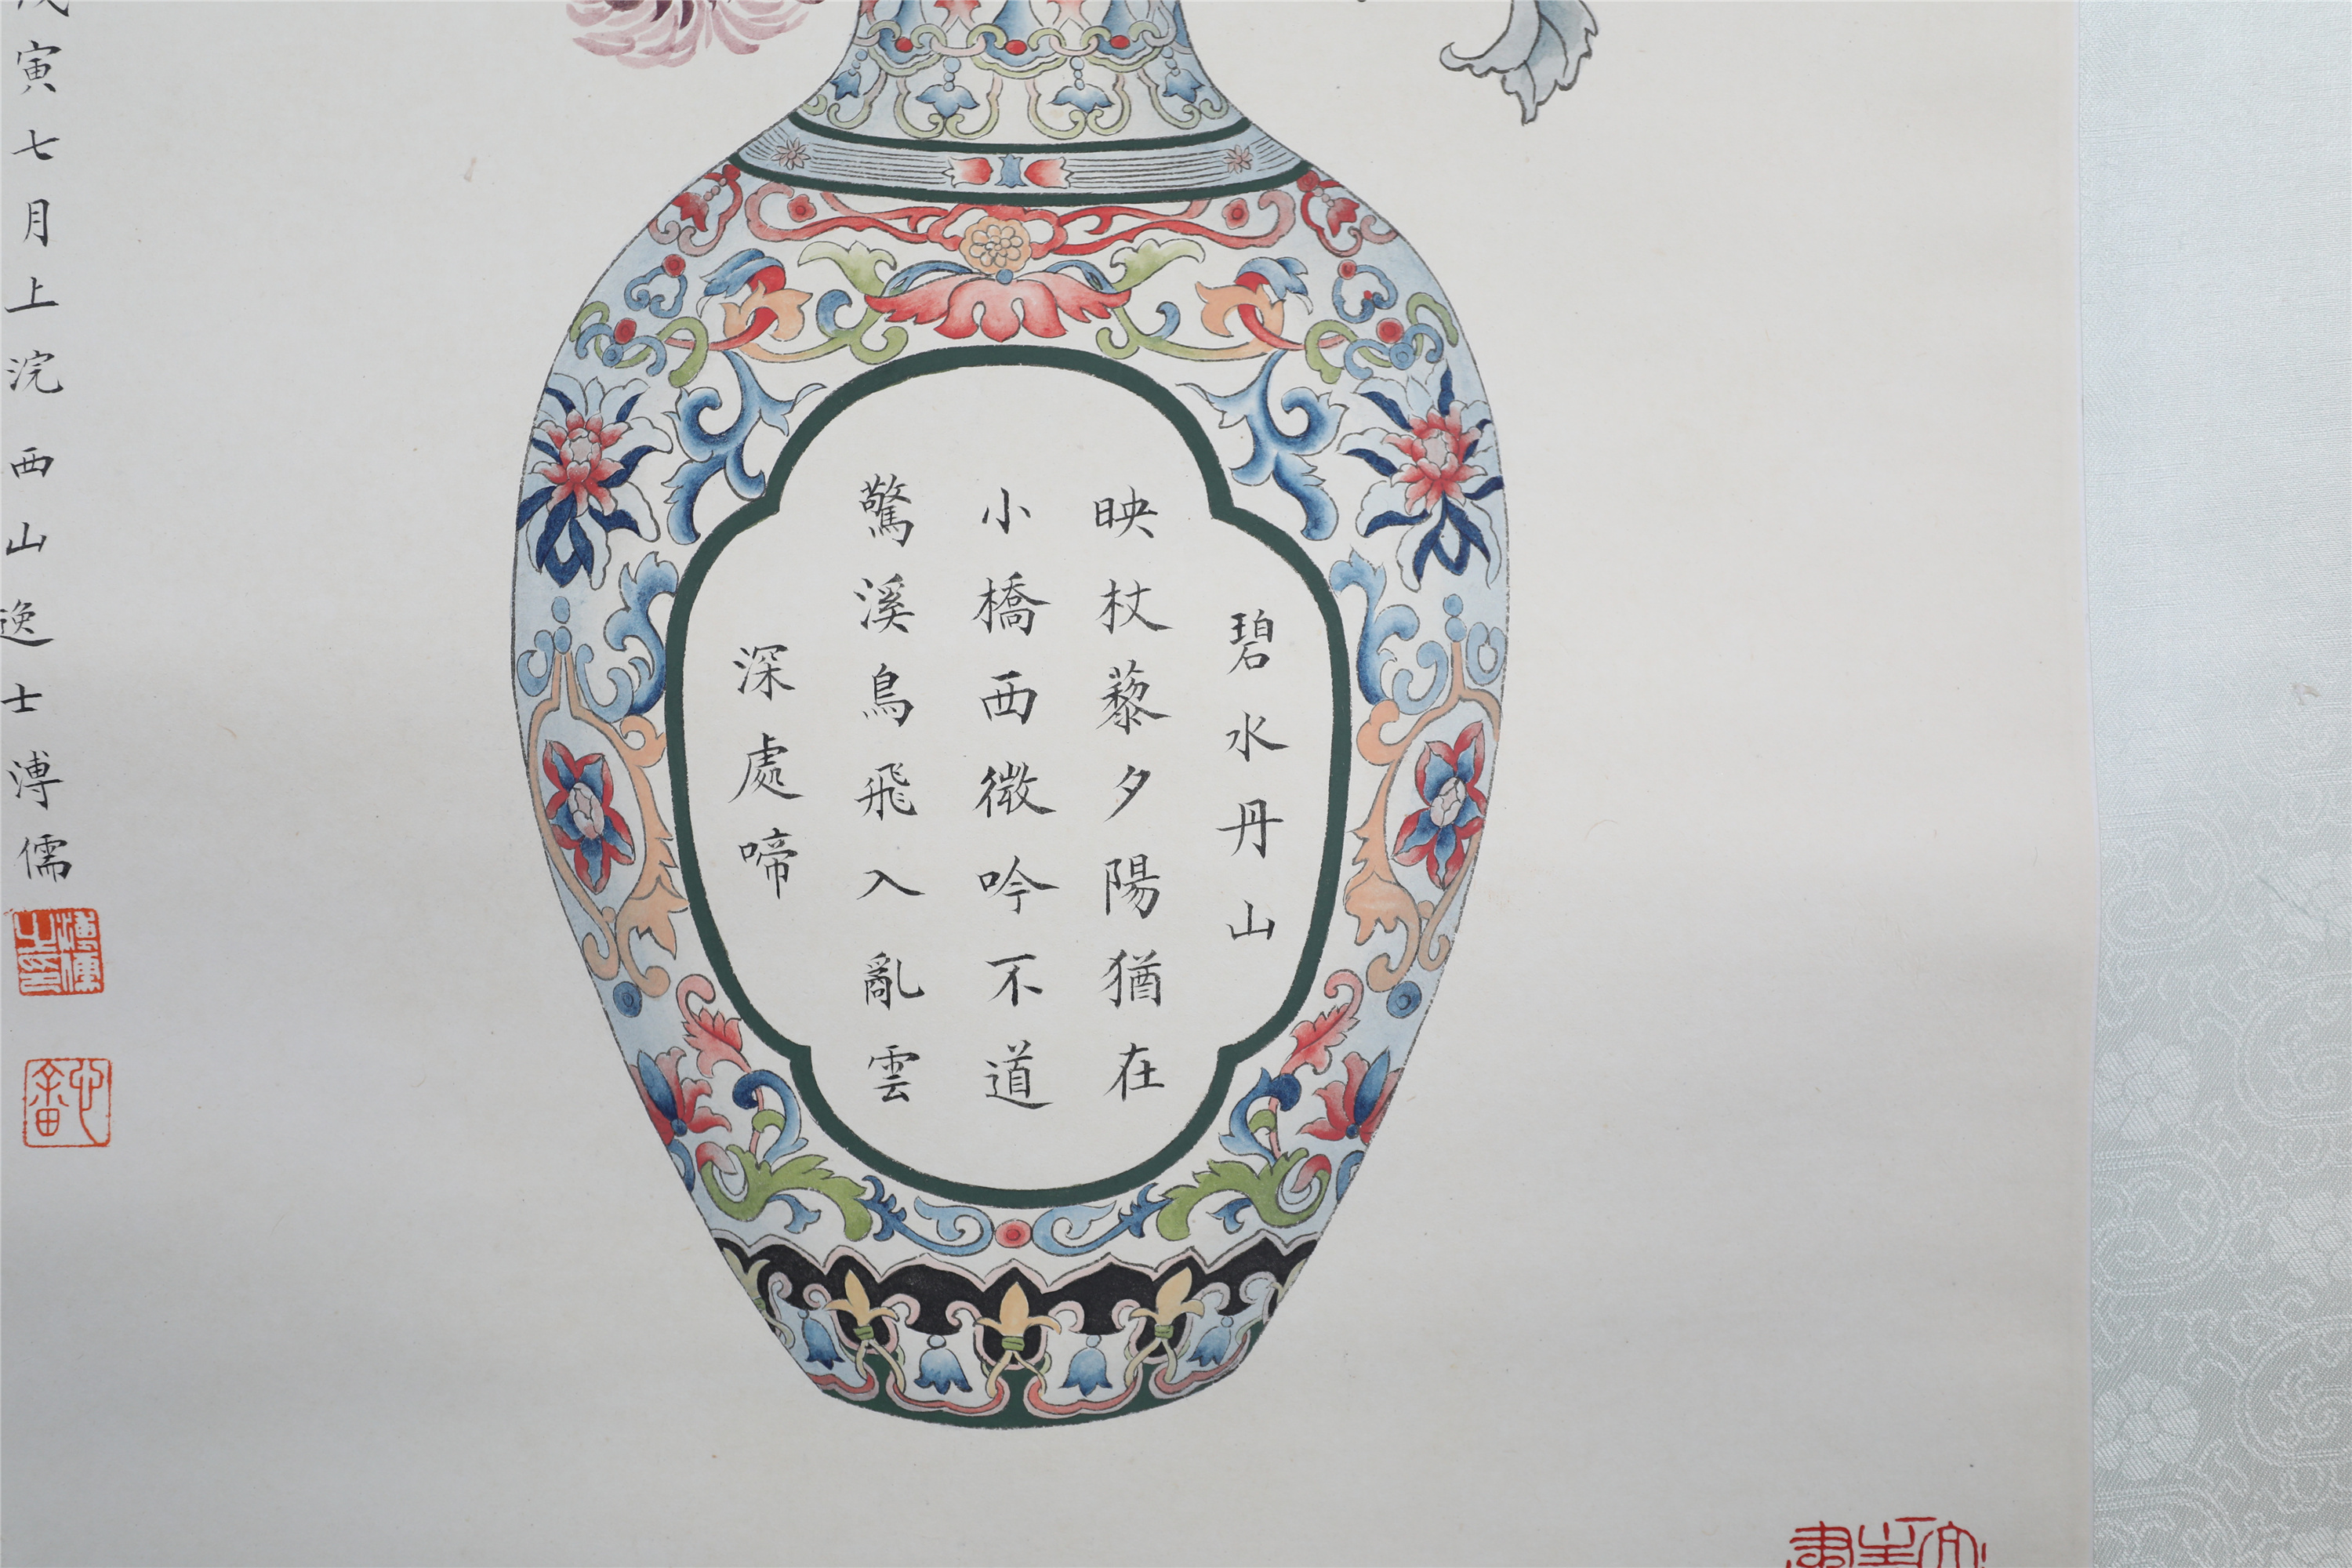 碧水丹山
映杖藜夕陽猶在
小橋西微吟不道
驚溪鳥飛入亂雲
深處啼
寅七月上浣西山逸士溥儒
溥儒之印
心畬